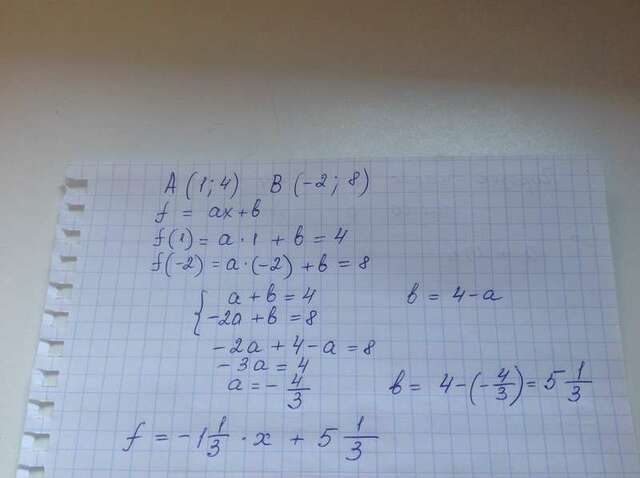 A (1; 4) B (-2; 8)
f = ax + b
f(1) = a · 1 + b = 4
f(-2) = a · (-2) + b = 8
{ a + b = 4 b = 4 - a
-2a + b = 8
-2a + 4 - a = 8
-3a = 4
a = - 4/3 b = 4 - (- 4/3) = 5 1/3
f = -1 1/3 · x + 5 1/3